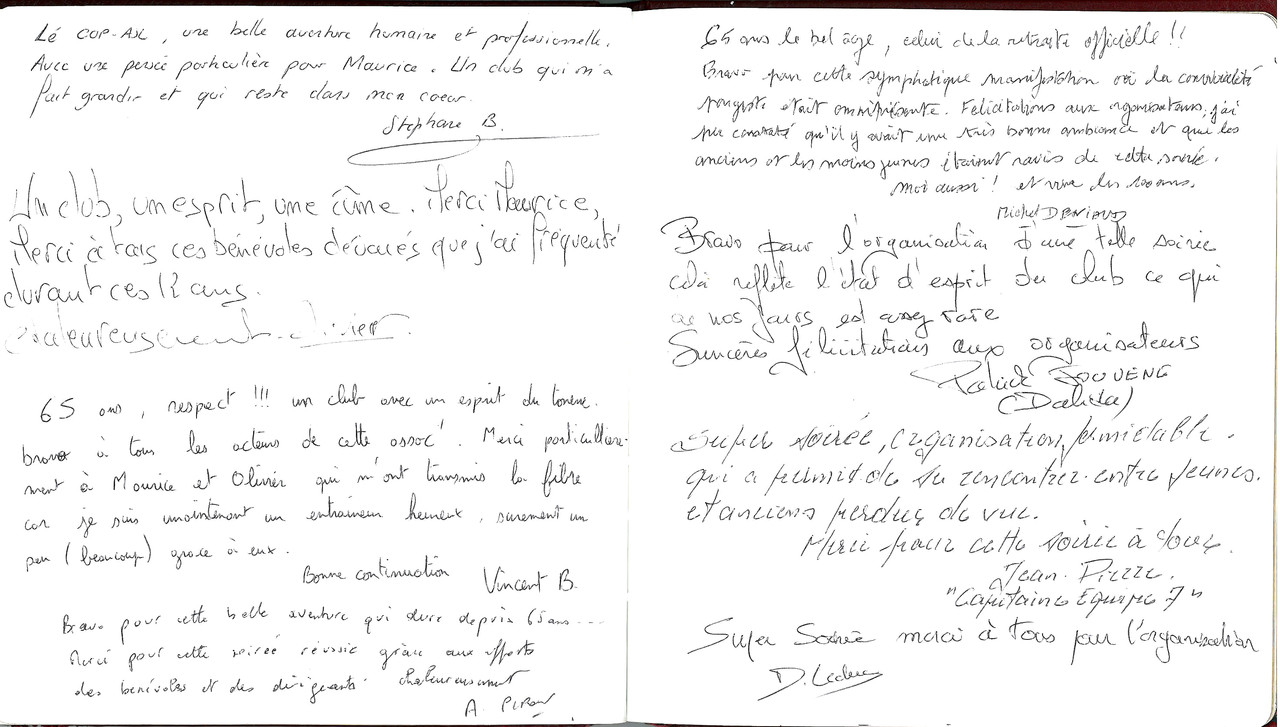 Lé COP-ASL, une belle aventure humaine et professionnelle.
Avec une pensée particulière pour Maurice. Un club qui m'a
fait grandir et qui reste dans mon coeur.
Stéphane B.
Un club, un esprit, une âme. Merci Maurice,
Merci à tous ces bénévoles dévoués que j'ai fréquenté
durant ces 12 ans.
Chaleureusement. Olivier.
65 ans, respect !!! un club avec un esprit du tonerre.
bravo à tous les acteurs de cette assoc'. Merci particulière-
ment à Maurice et Olivier qui m'ont transmis la fibre
car je suis maintenant un entraineur heureux, surement un
peu (beaucoup) grace à eux.
Bonne continuation Vincent B.
Bravo pour cette belle aventure qui dure depuis 65 ans....
Merci pour cette soirée réussie grâce aux efforts
des bénévoles et des dirigeants chaleureusement
A. PIRON
65 ans le bel âge, celui de la retraite officielle !!
Bravo pour cette symphatique manifestation où la convivialité
était omniprésente. Félicitations aux organisateurs, j'ai
pu constaté qu'il y avait une très bonne ambiance et que les
anciens et les moins jeunes étaient ravis de cette soirée.
moi aussi ! et vive les 100 ans.
Michel
Bravo pour l'organisation d'une telle soirée
celà reflète l'état d'esprit du club ce qui
de nos jours est assez rare
Suncères félicitations aux organisateurs
Patrick
(Dalida)
Super soirée, organisation formidable.
qui a permit de se rencontrer entre jeunes.
et anciens perdus de vue.
Merci pour cette soirée à tous.
Jean-Pierre.
"Capitaine Equipe 7"
Super Soirée merci à tous pour l'organisation
D. Leduc